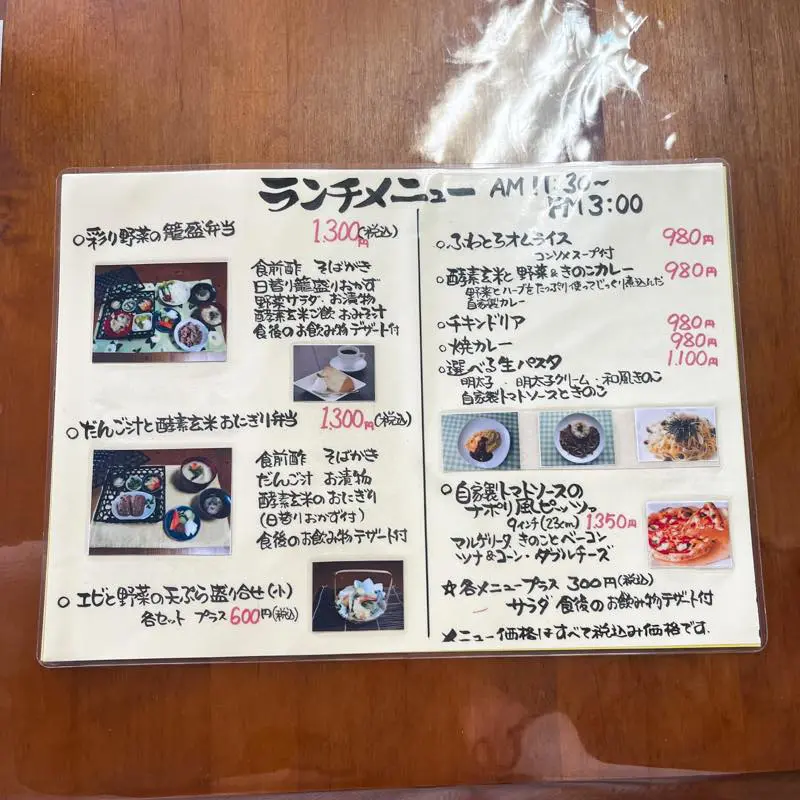 ランチメニュー AM 11:30~
PM 3:00
○彩り野菜の籠盛弁当 1,300円(税込)
食前酢 そばがき
日替り籠盛りおかず
野菜サラダ お漬物
酵素玄米ご飯 おみそ汁
食後のお飲み物デザート付
○だんご汁と酵素玄米おにぎり弁当 1,300円(税込)
食前酢 そばがき
だんご汁 お漬物
酵素玄米のおにぎり
(日替りおかず付)
食後のお飲み物デザート付
○エビと野菜の天ぷら盛り合せ(小)
各セット プラス600円(税込)
○ふわとろオムライス 980円
コンソメスープ付
○酵素玄米と野菜&きのこカレー 980円
野菜とハーブをたっぷり使ってじっくり煮込んだ
自家製カレー
○チキンドリア 980円
○焼カレー 980円
○選べる生パスタ 1,100円
明太子・明太子クリーム・和風きのこ
自家製トマトソースときのこ
○自家製トマトソースの
ナポリ風ピッツァ
9インチ(23cm) 1,350円
マルゲリータ きのことベーコン
ツナ&コーン・ダブルチーズ
☆各メニュープラス 300円(税込)
サラダ 食後のお飲み物デザート付
メニュー価格はすべて税込み価格です.